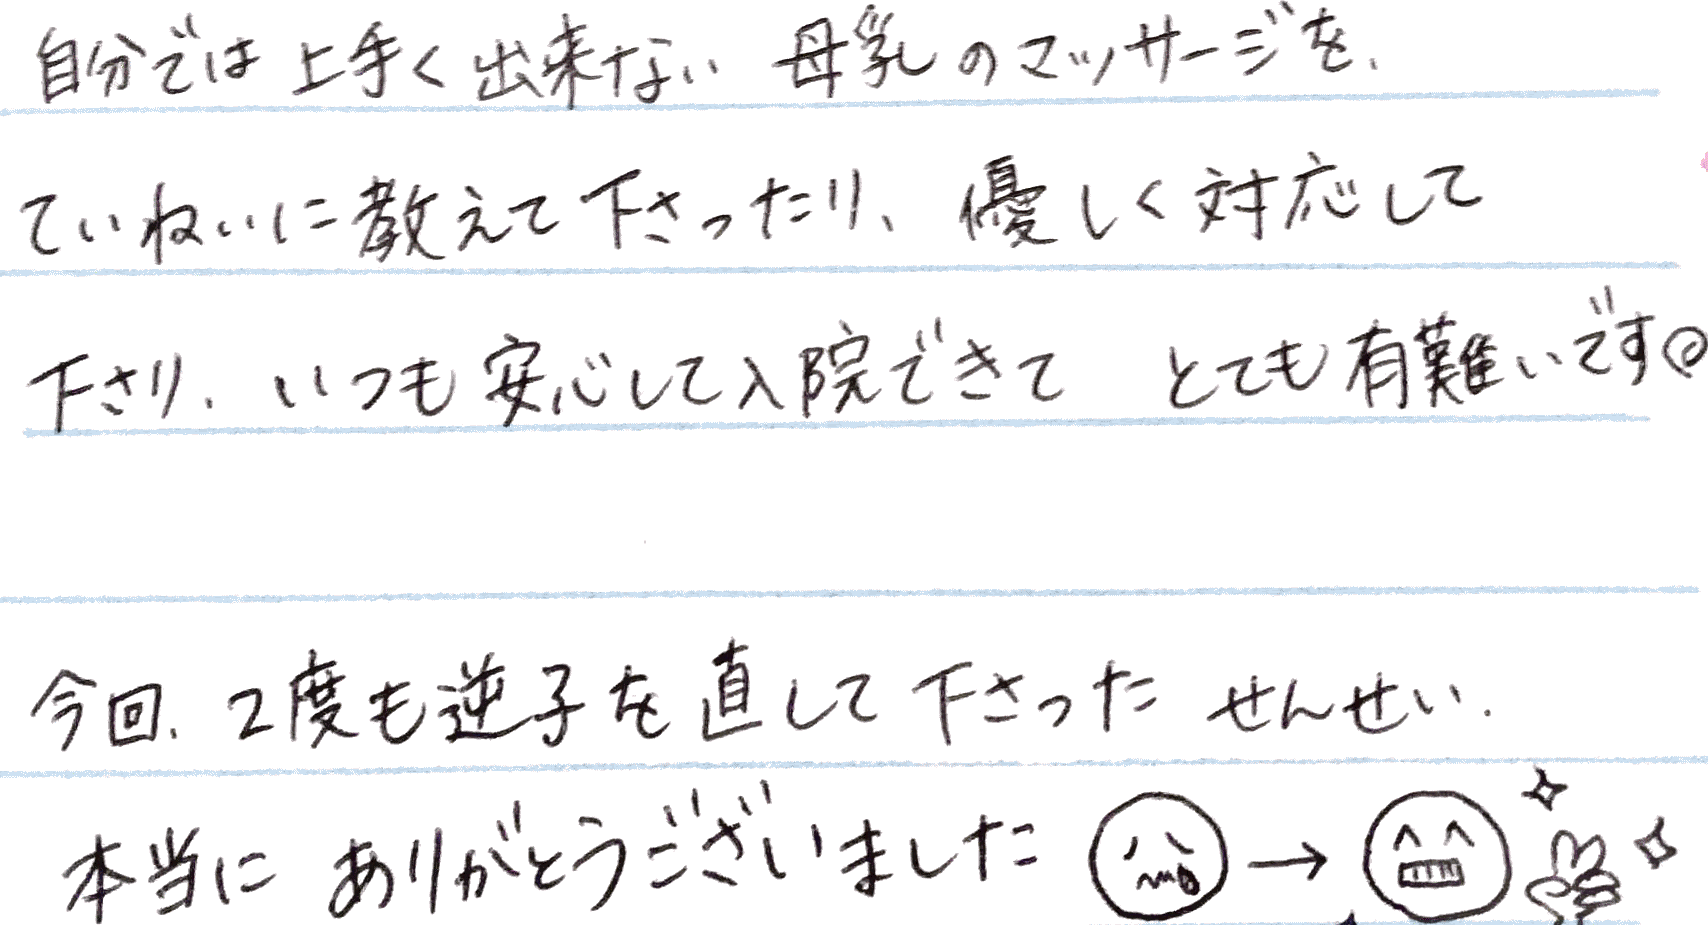 自分では上手く出来ない 母乳のマッサージを、
ていねいに教えて下さったり、優しく対応して
下さり、いつも安心して入院できて とても有難いです
今回、2度も逆子を直して下さった せんせい、
本当に ありがとうございました